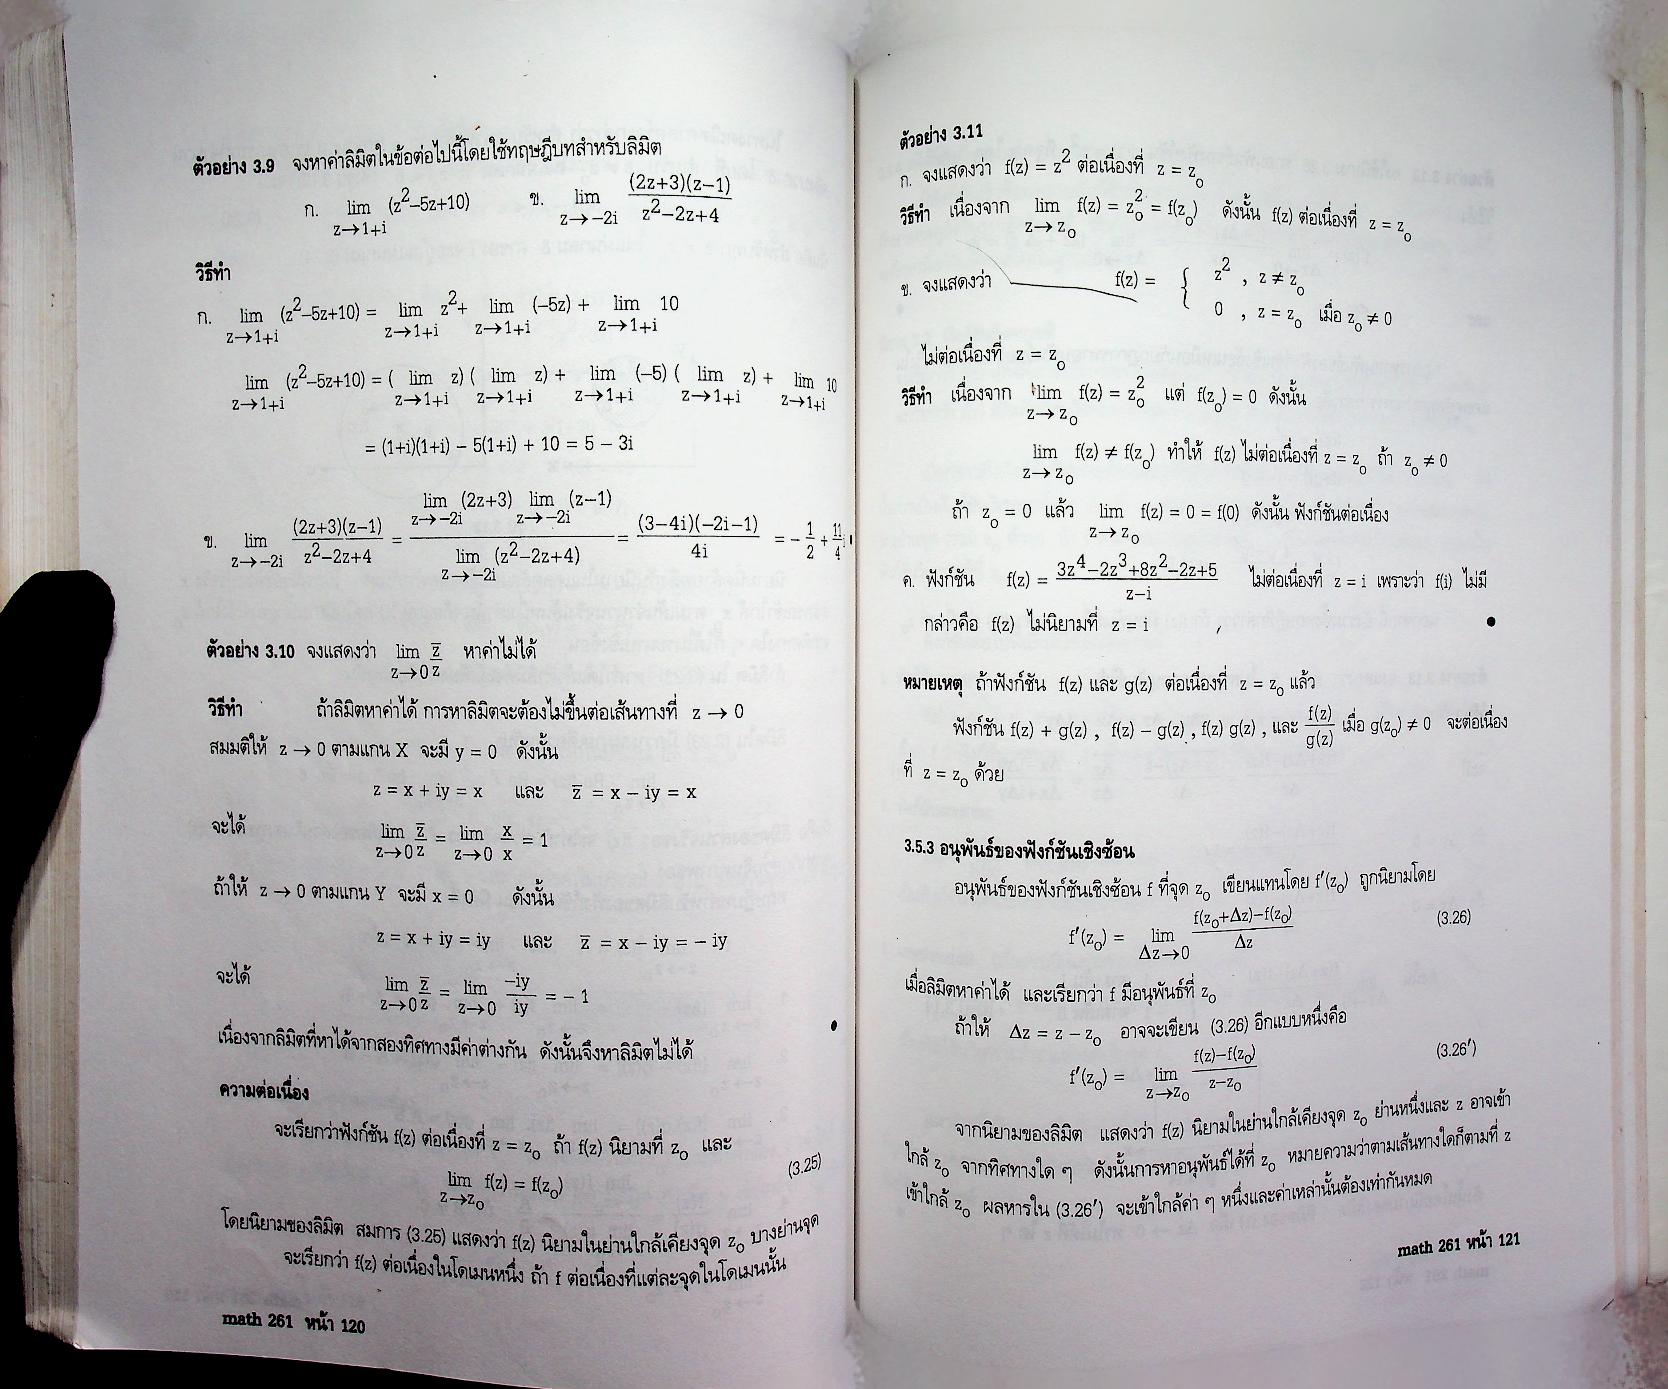 ตัวอย่าง 3.9 จงหาค่าลิมิตในข้อต่อไปนี้โดยใช้ทฤษฎีบทสำหรับลิมิต
ก. lim z→1+i (z²–5z+10) ข. lim z→–2i (2z+3)(z–1) / z²–2z+4
วิธีทำ
ก. lim z→1+i (z²–5z+10) = lim z→1+i z² + lim z→1+i (–5z) + lim z→1+i 10
lim z→1+i (z²–5z+10) = ( lim z→1+i z) ( lim z→1+i z) + lim z→1+i (–5) ( lim z→1+i z) + lim z→1+i 10
= (1+i)(1+i) – 5(1+i) + 10 = 5 – 3i
ข. lim z→–2i (2z+3)(z–1) / z²–2z+4 = lim z→–2i (2z+3) lim z→–2i (z–1) / lim z→–2i (z²–2z+4) = (3–4i)(–2i–1) / 4i = – 1/2 + 11/4 i
ตัวอย่าง 3.10 จงแสดงว่า lim z→0 z̅/z หาค่าไม่ได้
วิธีทำ ถ้าลิมิตหาค่าได้ การหาลิมิตจะต้องไม่ขึ้นต่อเส้นทางที่ z → 0
สมมติให้ z → 0 ตามแกน X จะมี y = 0 ดังนั้น
z = x + iy = x และ z̅ = x – iy = x
จะได้ lim z→0 z̅/z = lim z→0 x/x = 1
ถ้าให้ z → 0 ตามแกน Y จะมี x = 0 ดังนั้น
z = x + iy = iy และ z̅ = x – iy = – iy
จะได้ lim z→0 z̅/z = lim z→0 –iy/iy = – 1
เนื่องจากลิมิตที่หาได้จากสองทิศทางมีค่าต่างกัน ดังนั้นจึงหาลิมิตไม่ได้ •
ความต่อเนื่อง
จะเรียกว่าฟังก์ชัน f(z) ต่อเนื่องที่ z = z₀ ถ้า f(z) นิยามที่ z₀ และ
lim z→z₀ f(z) = f(z₀) (3.25)
โดยนิยามของลิมิต สมการ (3.25) แสดงว่า f(z) นิยามในย่านใกล้เคียงจุด z₀ บางย่านจุด
จะเรียกว่า f(z) ต่อเนื่องในโดเมนหนึ่ง ถ้า f ต่อเนื่องที่แต่ละจุดในโดเมนนั้น
math 261 หน้า 120
ตัวอย่าง 3.11
ก. จงแสดงว่า f(z) = z² ต่อเนื่องที่ z = z₀
วิธีทำ เนื่องจาก lim z→z₀ f(z) = z₀² = f(z₀) ดังนั้น f(z) ต่อเนื่องที่ z = z₀
ข. จงแสดงว่า f(z) = { z² , z ≠ z₀
0 , z = z₀ เมื่อ z₀ ≠ 0
ไม่ต่อเนื่องที่ z = z₀
วิธีทำ เนื่องจาก lim z→z₀ f(z) = z₀² แต่ f(z₀) = 0 ดังนั้น
lim z→z₀ f(z) ≠ f(z₀) ทำให้ f(z) ไม่ต่อเนื่องที่ z = z₀ ถ้า z₀ ≠ 0
ถ้า z₀ = 0 แล้ว lim z→z₀ f(z) = 0 = f(0) ดังนั้น ฟังก์ชันต่อเนื่อง
ค. ฟังก์ชัน f(z) = 3z⁴–2z³+8z²–2z+5 / z–i ไม่ต่อเนื่องที่ z = i เพราะว่า f(i) ไม่มี
กล่าวคือ f(z) ไม่นิยามที่ z = i •
หมายเหตุ ถ้าฟังก์ชัน f(z) และ g(z) ต่อเนื่องที่ z = z₀ แล้ว
ฟังก์ชัน f(z) + g(z) , f(z) – g(z) , f(z) g(z) , และ f(z)/g(z) เมื่อ g(z₀) ≠ 0 จะต่อเนื่อง
ที่ z = z₀ ด้วย
3.5.3 อนุพันธ์ของฟังก์ชันเชิงซ้อน
อนุพันธ์ของฟังก์ชันเชิงซ้อน f ที่จุด z₀ เขียนแทนโดย f′(z₀) ถูกนิยามโดย
f′(z₀) = lim Δz→0 f(z₀+Δz)–f(z₀) / Δz (3.26)
เมื่อลิมิตหาค่าได้ และเรียกว่า f มีอนุพันธ์ที่ z₀
ถ้าให้ Δz = z – z₀ อาจจะเขียน (3.26) อีกแบบหนึ่งคือ
f′(z₀) = lim z→z₀ f(z)–f(z₀) / z–z₀ (3.26′)
จากนิยามของลิมิต แสดงว่า f(z) นิยามในย่านใกล้เคียงจุด z₀ ย่านหนึ่งและ z อาจเข้า
ใกล้ z₀ จากทิศทางใด ๆ ดังนั้นการหาอนุพันธ์ได้ที่ z₀ หมายความว่าตามเส้นทางใดก็ตามที่ z
เข้าใกล้ z₀ ผลหารใน (3.26′) จะเข้าใกล้ค่า ๆ หนึ่งและค่าเหล่านั้นต้องเท่ากันหมด
math 261 หน้า 121